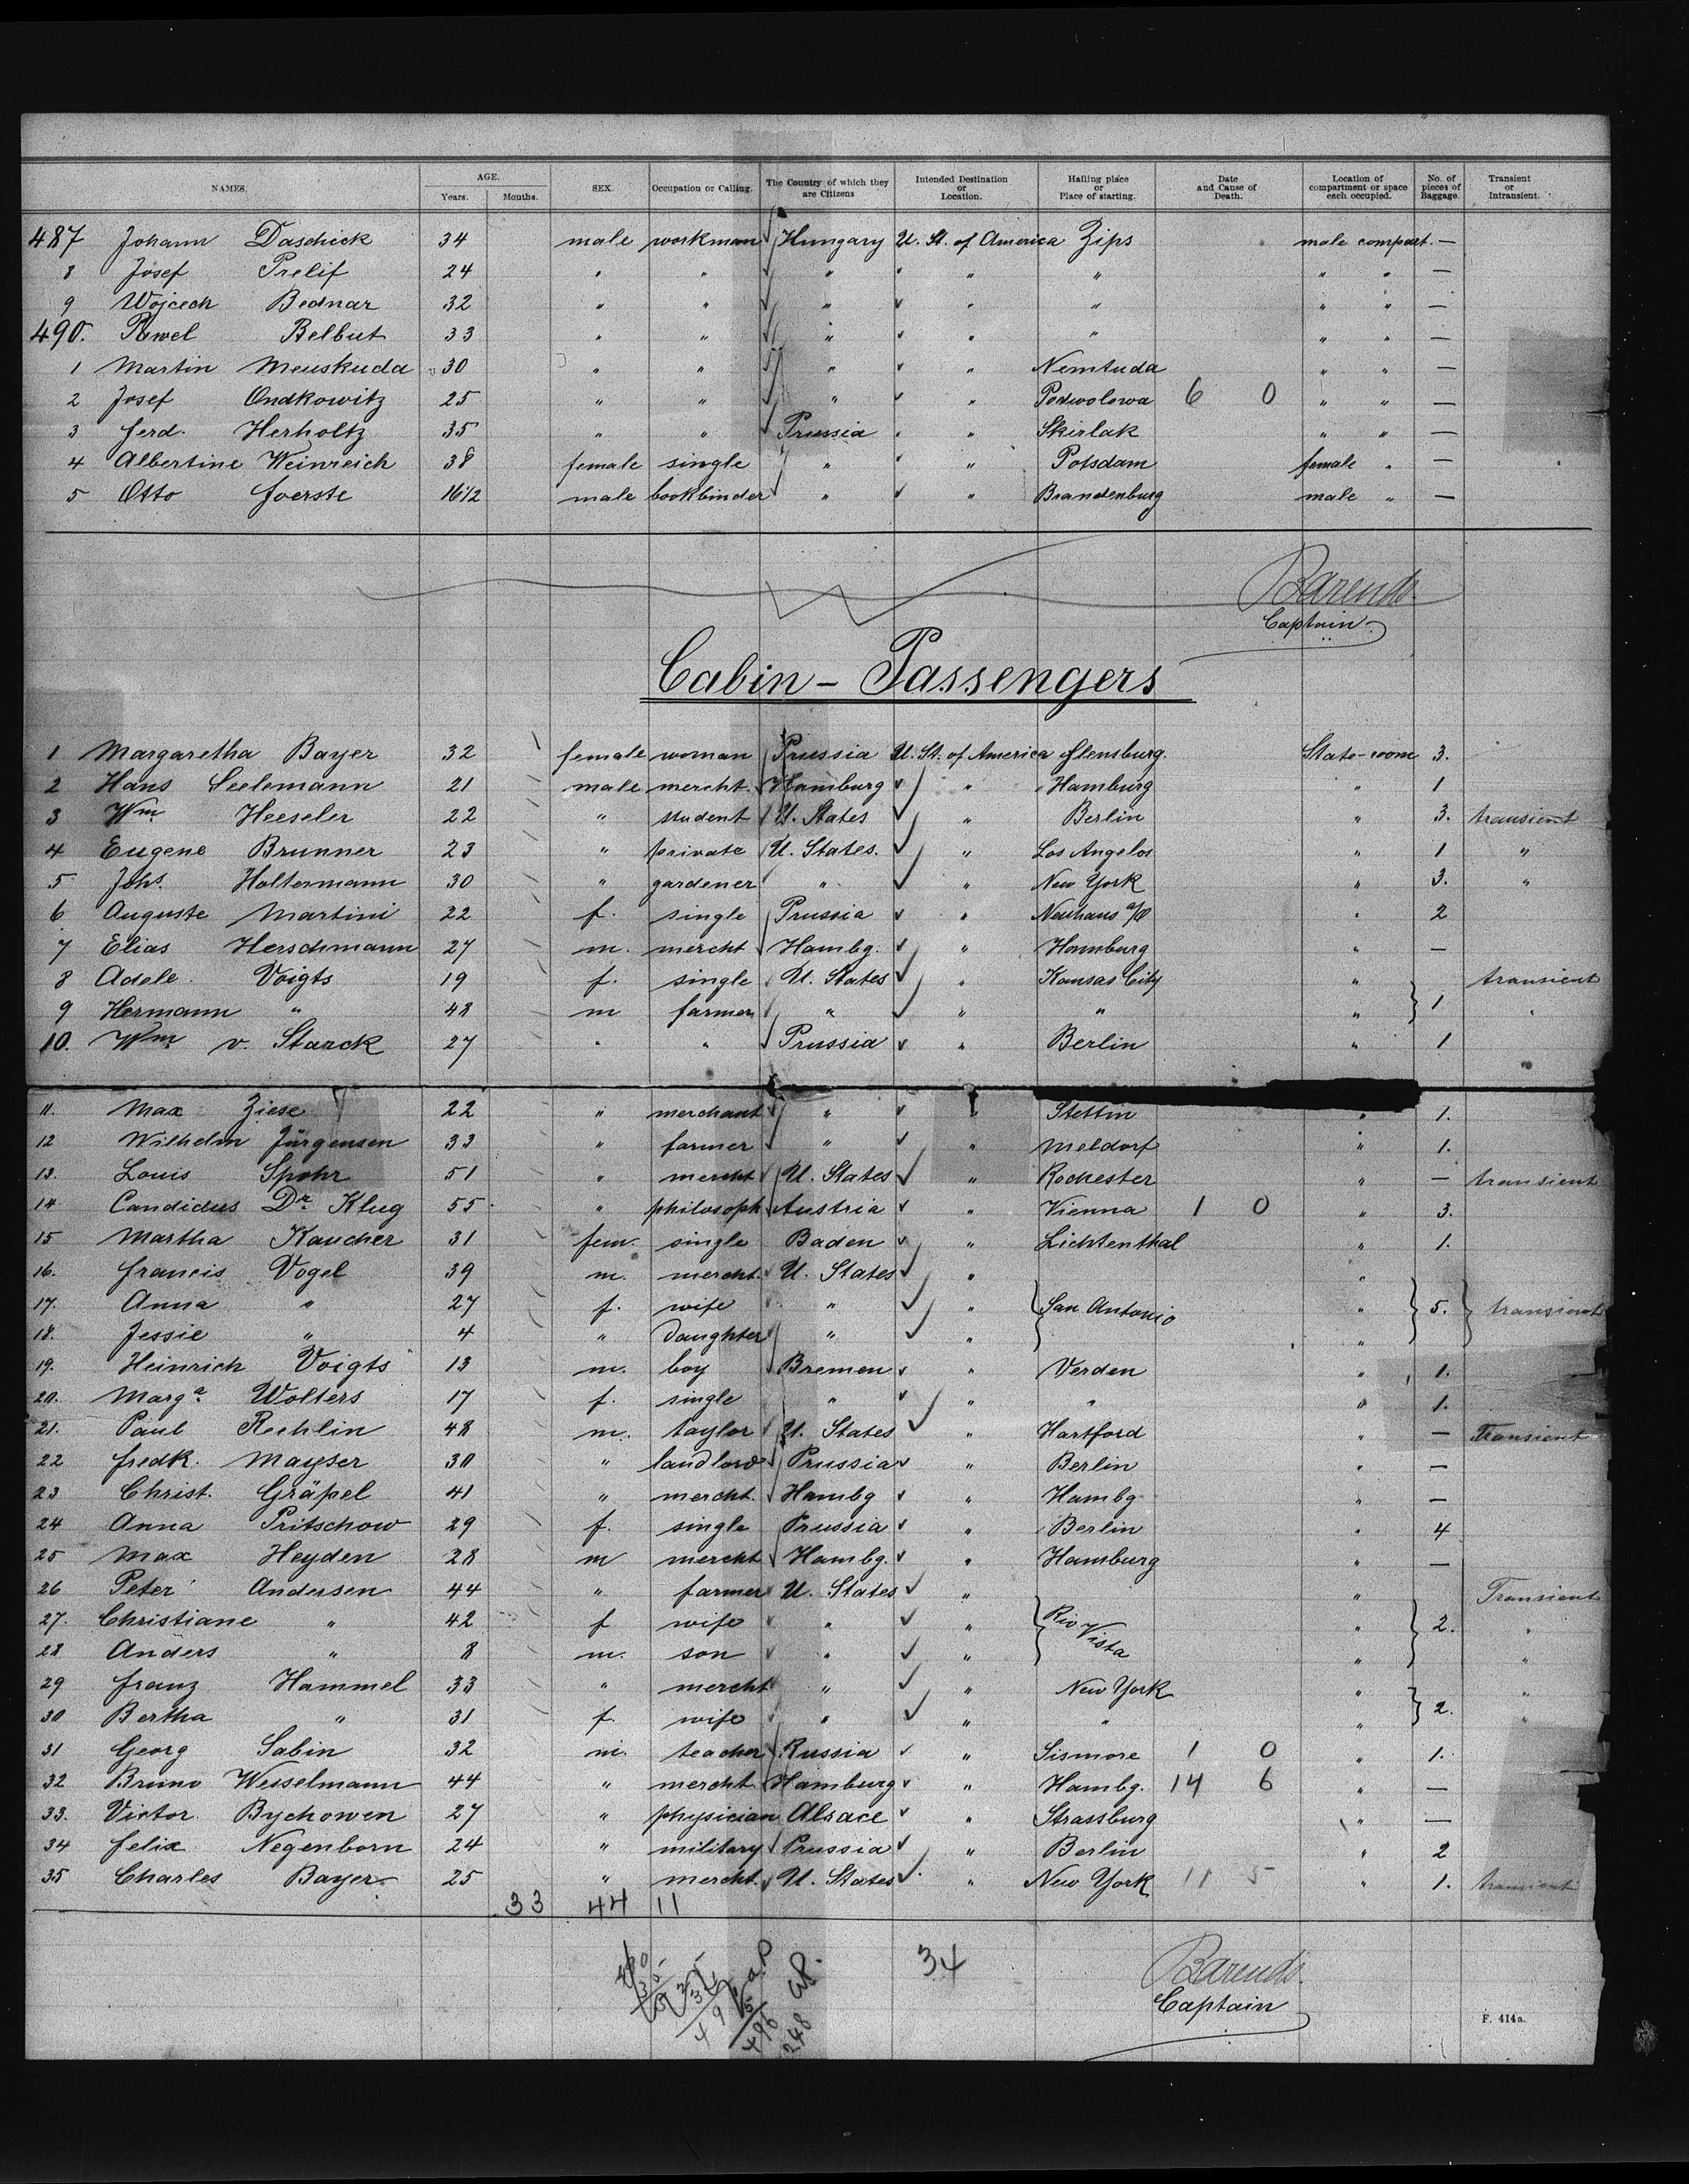 NAMES. AGE. Years. Months. SEX. Occupation or Calling. The Country of which they are Citizens Intended Destination or Location. Hailing place or Place of starting. Date and Cause of Death. Location of compartment or space each occupied. No. of pieces of Baggage. Transient or Intransient.
487 Johann Daschick 34 male workman Hungary U. St. of America Zips male compart. —
8 Josef Prelif 24 " " " " " " " —
9 Wojcech Bednar 32 " " " " " " " —
490. Pawel Belbut 33 " " " " " " " —
1 Martin Meuskuda 30 " " " " Nemtuda " " —
2 Josef Ondkowitz 25 " " " " Podwolowa 6 0 " " —
3 Ferd. Herholtz 35 " " Prussia " Skirlak " " —
4 Albertine Weinreich 38 female single " " Potsdam female " —
5 Otto Foerste 16 1/2 male bookbinder " " Brandenburg male " —
Barends.
Captain
Cabin - Passengers
1 Margaretha Bayer 32 female woman Prussia U. St. of America Flensburg. State-room 3.
2 Hans Seelemann 21 male mercht. Hamburg " Hamburg " 1
3 Wm Heeseler 22 " student U. States " Berlin " 3. transient
4 Eugene Brunner 23 " private U. States. " Los Angelos " 1 "
5 Johs. Holtermann 30 " gardener " " New York " 3. "
6 Auguste Martini 22 f. single Prussia " Neuhaus a/O " 2
7 Elias Herschmann 27 m. mercht Hambg. " Hamburg " —
8 Adele Voigts 19 f. single U. States " Kansas City " transient
9 Hermann " 48 m farmer " " " " 1 "
10. Wm v. Starck 27 " " Prussia " Berlin " 1
11. Max Ziese 22 " merchant " " Stettin " 1.
12 Wilhelm Jürgensen 33 " farmer " " Meldorf " 1.
13. Louis Spohr 51 " mercht U. States " Rochester " — transient
14 Candidus Dr. Klug 55 " philosoph Austria " Vienna 1 0 " 3.
15 Martha Kaucher 31 fem. single Baden " Lichtenthal " 1.
16. Francis Vogel 39 m. mercht. U. States " "
17. Anna " 27 f. wife " " San Antonio " 5. transient
18. Jessie " 4 " daughter " " "
19. Heinrich Voigts 13 m. boy Bremen " Verden " 1.
20. Marga. Wolters 17 f. single " " " " 1.
21. Paul Rechlin 48 m. taylor U. States " Hartford " — Transient
22 Fredk. Mayser 30 " landlord Prussia " Berlin " —
23 Christ. Gräpel 41 " mercht. Hambg " Hambg " —
24 Anna Pritschow 29 f. single Prussia " Berlin " 4
25 Max Heyden 28 m mercht Hambg. " Hamburg " —
26 Peter Andersen 44 " farmer U. States " " Transient
27. Christiane " 42 f wife " " Rio Vista " 2. "
28 Anders " 8 m. son " " " "
29 Franz Hammel 33 " mercht " " New York " "
30 Bertha " 31 f. wife " " " " 2. "
31 Georg Sabin 32 m. teacher Russia " Sismore 1 0 " 1.
32 Bruno Wesselmann 44 " mercht Hamburg " Hambg. 14 6 " —
33. Victor Bychowen 27 " physician Alsace " Strassburg " —
34 Felix Negenborn 24 " military Prussia " Berlin " 2
35 Charles Bayer 25 " mercht. U. States " New York 11 5 " 1. transient
33 44 11
34
496
248
Barends.
Captain
F. 414a.